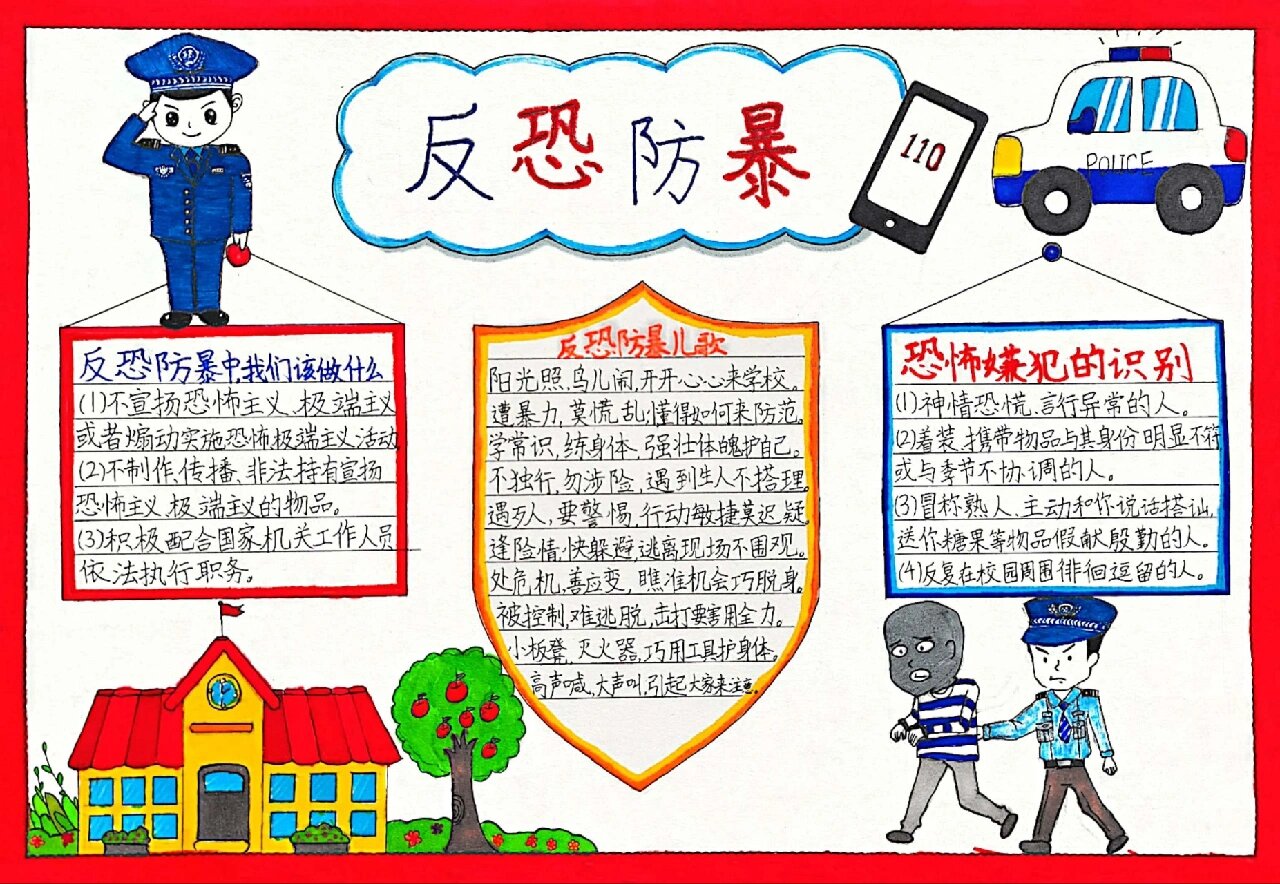 反恐防暴
110
POLICE
反恐防暴中我们该做什么
(1)不宣扬恐怖主义、极端主义
或者煽动实施恐怖、极端主义活动
(2)不制作、传播、非法持有宣扬
恐怖主义、极端主义的物品。
(3)积极配合国家机关工作人员
依法执行职务。
反恐防暴儿歌
阳光照,鸟儿闹,开开心心来学校。
遭暴力,莫慌乱,懂得如何来防范。
学常识,练身体,强壮体魄护自己。
不独行,勿涉险,遇到生人不搭理。
遇歹人,要警惕,行动敏捷莫迟疑。
逢险情,快躲避,逃离现场不围观。
处危机,善应变,瞧准机会巧脱身。
被控制,难逃脱,击打要害用全力。
小板凳,灭火器,巧用工具护身体。
高声喊,大声叫,引起大家来注意。
恐怖嫌犯的识别
(1)神情恐慌、言行异常的人。
(2)着装、携带物品与其身份明显不符
或与季节不协调的人。
(3)冒称熟人、主动和你说话搭讪,
送你糖果等物品假献殷勤的人。
(4)反复在校园周围徘徊逗留的人。